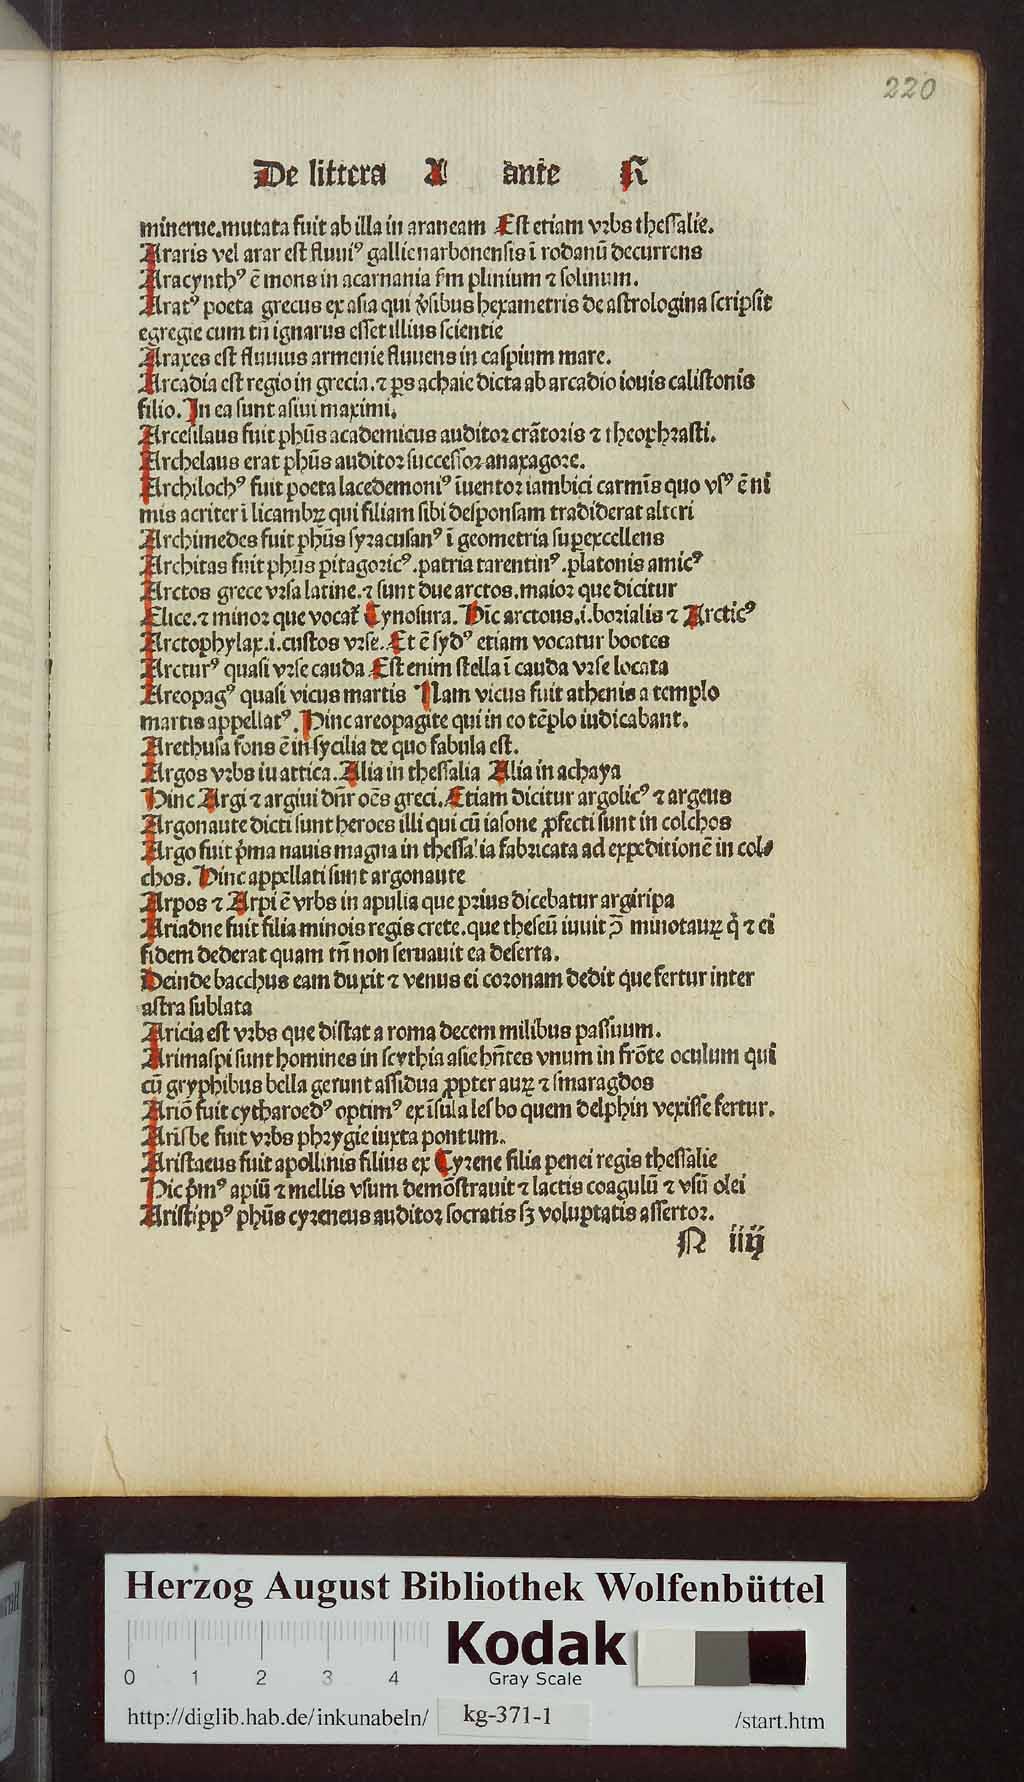 220
De littera A ante R
minerue.mutata fuit ab illa in araneam Est etiam vrbs thessalie.
Araris vel arar est fluuiꝰ gallie narbonensis ī rodanū decurrens
Aracynthꝰ ē mons in acarnania ſm plinium ⁊ solinum.
Aratꝰ poeta grecus ex asia qui v̓sibus hexametris de astrologina scripsit
egregie cum tn̄ ignarus esset illius scientie
Araxes est fluuius armenie fluuens in caspium mare.
Arcadia est regio in grecia.⁊ ps achaie dicta ab arcadio iouis calistonis
filio. In ea sunt asini maximi.
Arcesilaus fuit phūs academicus auditor crātoris ⁊ theophrasti.
Archelaus erat phūs auditor successor anaxagore.
Archilochꝰ fuit poeta lacedemoniꝰ īuentor iambici carmīs quo vsꝰ ē ni
mis acriter ī licambꝝ qui filiam sibi desponsam tradiderat alteri
Archimedes fuit phūs syracusanꝰ ī geometria superexcellens
Architas fuit phūs pitagoricꝰ.patria tarentinꝰ.platonis amicꝰ
Arctos grece vrsa latine.⁊ sunt due arctos.maior que dicitur
Elice.⁊ minor que vocat᷑ Cynosura. Hīc arctous.i.borialis ⁊ Arcticꝰ
Arctophylax.i.custos vrse. Et ē sydꝰ etiam vocatur bootes
Arcturꝰ quasi vrse cauda Est enim stella ī cauda vrse locata
Areopagꝰ quasi vicus martis Nam vicus fuit athenis a templo
martis appellatꝰ. Hinc areopagite qui in eo tēplo iudicabant.
Arethusa fons ē in sycilia de quo fabula est.
Argos vrbs iu attica. Alia in thessalia Alia in achaya
Hinc Argi ⁊ argiui dn̄r oēs greci. Etiam dicitur argolicꝰ ⁊ argeus
Argonaute dicti sunt heroes illi qui cū iasone ꝓfecti sunt in colchos
Argo fuit p̄ma nauis magna in thessalia fabricata ad expeditionē in col⸗
chos. Hinc appellati sunt argonaute
Arpos ⁊ Arpi ē vrbs in apulia que prius dicebatur argiripa
Ariadne fuit filia minois regis crete.que theseū iuuit ↄ̄ minotauꝝ q̇ ⁊ ei
fidem dederat quam tn̄ non seruauit ea deserta.
Deinde bacchus eam duxit ⁊ venus ei coronam dedit que fertur inter
astra sublata
Aricia est vrbs que distat a roma decem milibus passuum.
Arimaspi sunt homines in scythia asie hn̄tes vnum in frōte oculum qui
cū gryphibus bella gerunt assidua ꝓpter auꝝ ⁊ smaragdos
Ariō fuit cytharoedꝰ optimꝰ ex īsula lesbo quem delphin vexisse fertur.
Arisbe fuit vrbs phrygie iuxta pontum.
Aristaeus fuit apollinis filius ex Cyrene filia penei regis thessalie
Hic p̄mꝰ apiū ⁊ mellis vsum demōstrauit ⁊ lactis coagulū ⁊ vsū olei
Aristippꝰ phūs cyreneus auditor socratis sꝫ voluptatis assertor.
N iiij
Herzog August Bibliothek Wolfenbüttel
0 1 2 3 4
Kodak
Gray Scale
http://diglib.hab.de/inkunabeln/ kg-371-1 /start.htm